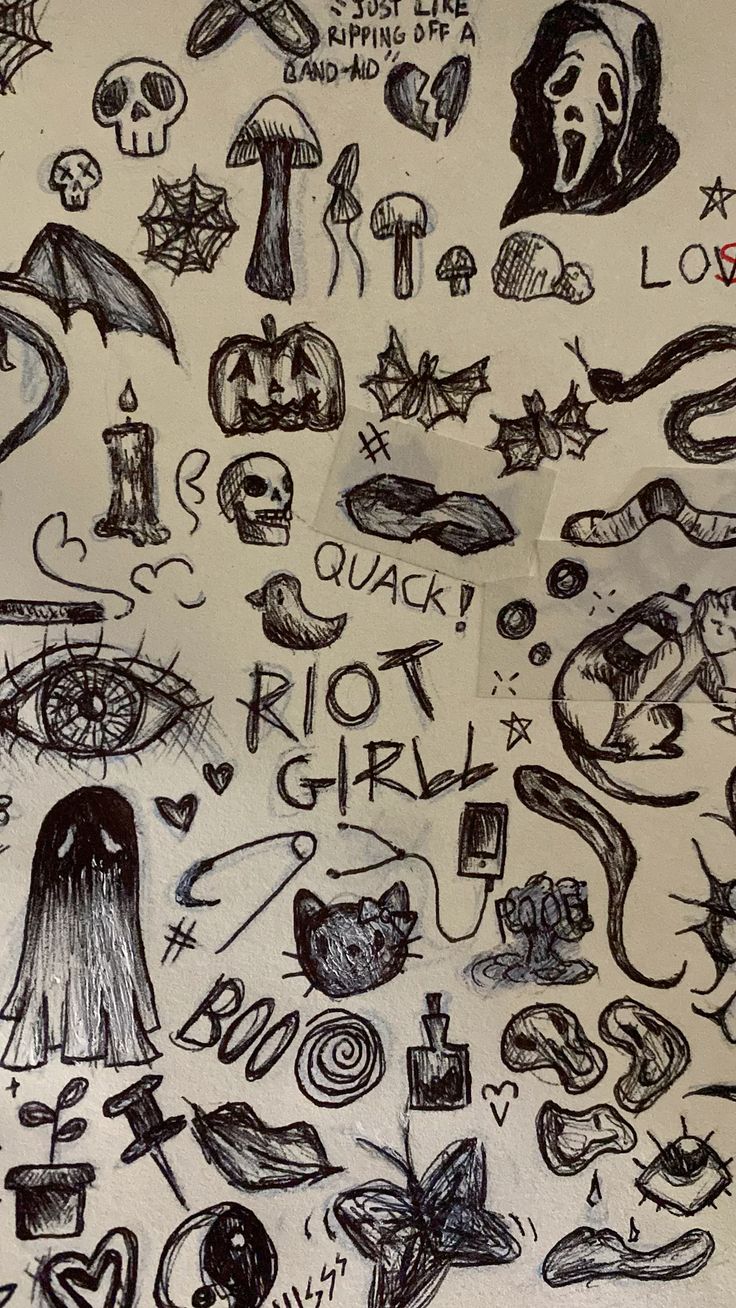 "JUST LIKE
RIPPING OFF A
BAND-AID"
LOVS
#
QUACK!
RIOT
GIRLL
#
BOO